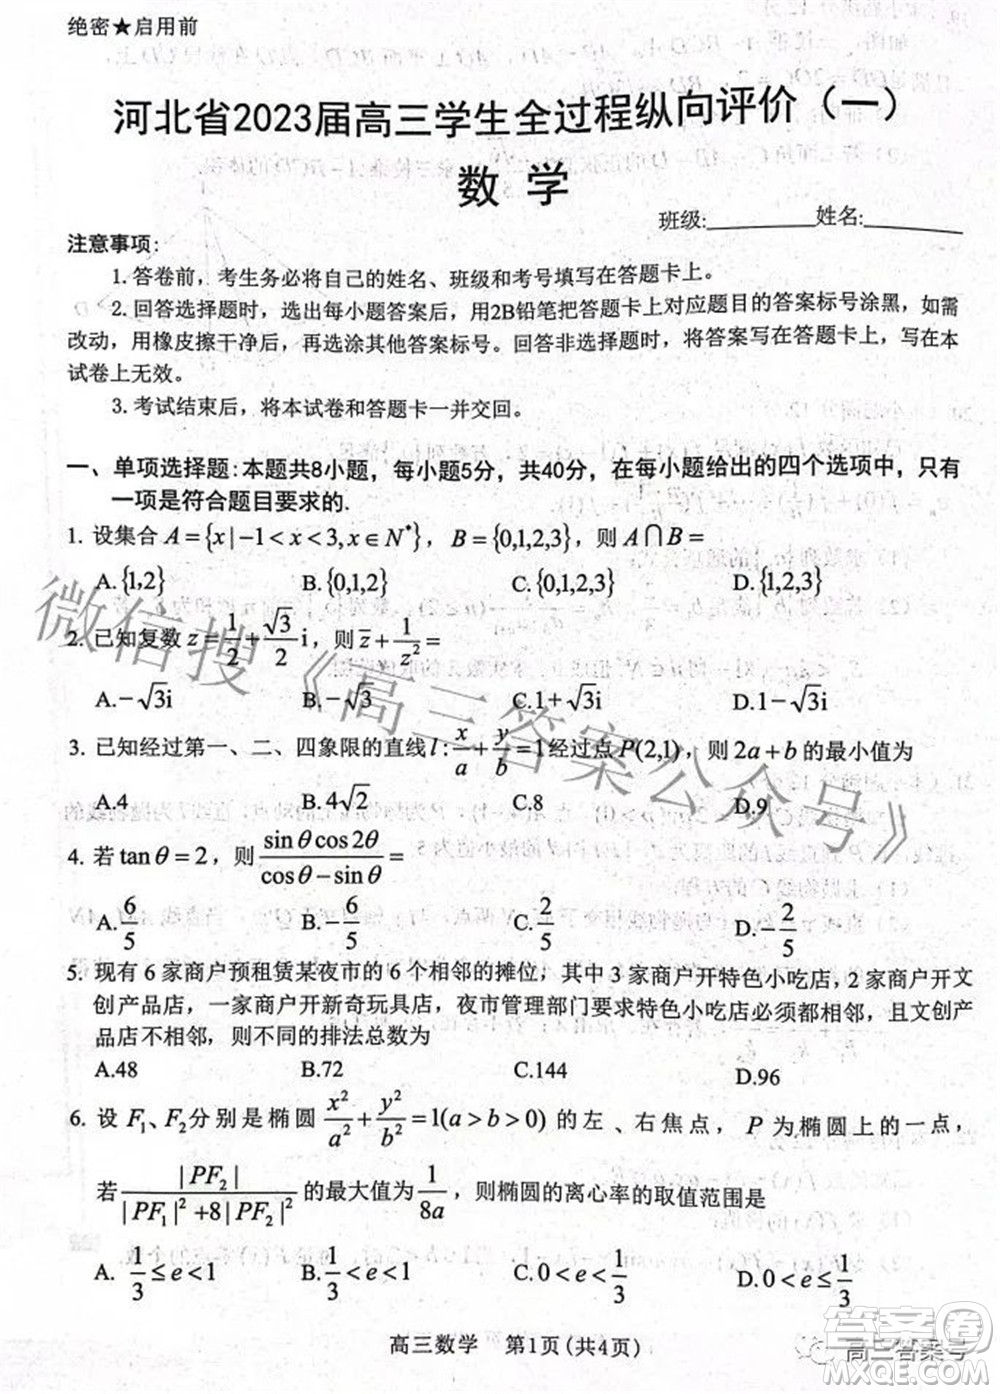 绝密★启用前
河北省2023届高三学生全过程纵向评价（一）
数 学
班级:________ 姓名:________
注意事项：
1. 答卷前，考生务必将自己的姓名、班级和考号填写在答题卡上。
2. 回答选择题时，选出每小题答案后，用2B铅笔把答题卡上对应题目的答案标号涂黑，如需
改动，用橡皮擦干净后，再选涂其他答案标号。回答非选择题时，将答案写在答题卡上，写在
本试卷上无效。
3. 考试结束后，将本试卷和答题卡一并交回。
一、单项选择题：本题共8小题，每小题5分，共40分，在每小题给出的四个选项中，只有
一项是符合题目要求的.
1. 设集合 A={x|-1<x<3,x∈N*}，B={0,1,2,3}，则 A∩B=
A.{1,2} B.{0,1,2} C.{0,1,2,3} D.{1,2,3}
2. 已知复数 z=1/2+√3/2 i，则 z̄+1/z²=
A.-√3i B.-√3 C.1+√3i D.1-√3i
3. 已知经过第一、二、四象限的直线 l:x/a+y/b=1经过点P(2,1)，则2a+b的最小值为
A.4 B.4√2 C.8 D.9
4. 若 tanθ=2，则 sinθcos2θ/(cosθ-sinθ)=
A.6/5 B.-6/5 C.2/5 D.-2/5
5. 现有 6 家商户预租赁某夜市的 6 个相邻的摊位，其中 3 家商户开特色小吃店，2 家商户开文
创产品店，一家商户开新奇玩具店，夜市管理部门要求特色小吃店必须都相邻，且文创产品
店不相邻，则不同的排法总数为
A.48 B.72 C.144 D.96
6. 设 F₁、F₂分别是椭圆 x²/a²+y²/b²=1(a>b>0) 的左、右焦点，P 为椭圆上的一点，
若 |PF₂|/(|PF₁|²+8|PF₂|²) 的最大值为 1/8a，则椭圆的离心率的取值范围是
A. 1/3≤e<1 B. 1/3<e<1 C. 0<e<1/3 D. 0<e≤1/3
高三数学 第1页(共4页)
微信搜《高三答案公众号》
高三答案号